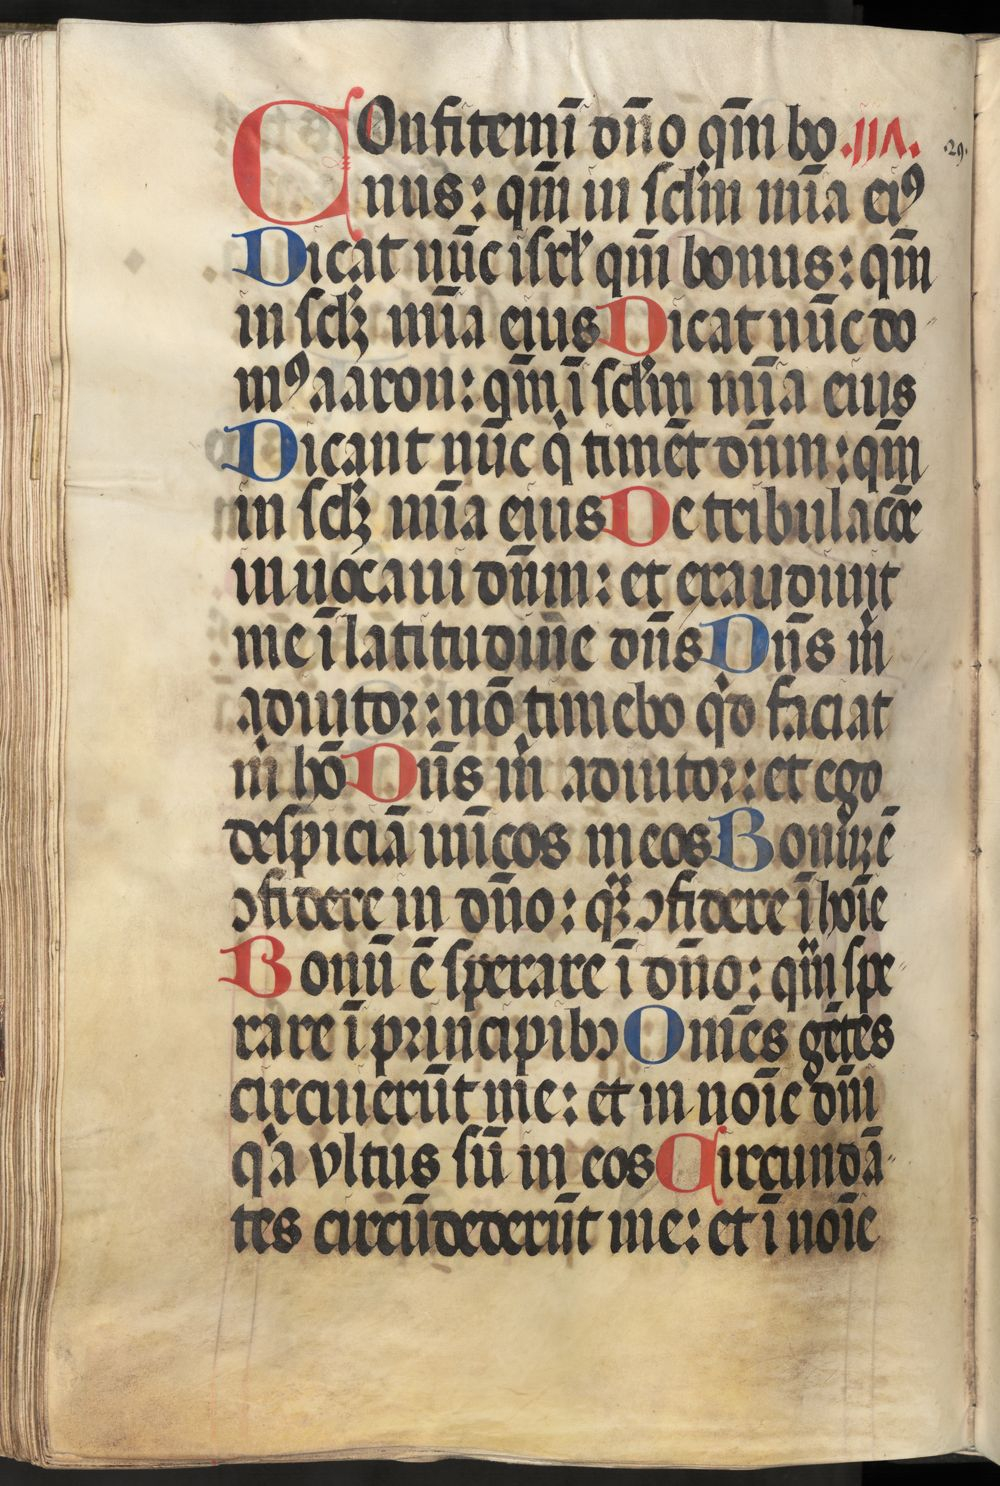 COnfitemī dño qm̄ bo .pſ.
nus: qm̄ in sclm̄ mīa eiꝰ
Dicat nūc isrl̄ qm̄ bonus: qm̄
in sclꝫ mīa eius Dicat nūc do
mꝰ aaron: qm̄ ī sclm̄ mīa eius
Dicant nūc q̇ timēt dn̄m: qm̄
in sclꝫ mīa eius De tribulacōe
inuocaui dn̄m: et exaudiuit
me ī latitudine dn̄s Dn̄s ṁ
adiutor: nō timebo qͦd faciat
ṁ hō Dn̄s ṁ adiutor: et ego
despiciā inīcos meos Bonuꝫ ē
ꝯfidere in dño: qꝫ ꝯfidere ī hoīe
Bonū ē sperare ī dño: qͣꝫ spe
rare ī principibꝫ Omēs gētes
circuierūt me: et in noīe dn̄i
qͣa vltus sū in eos Circundā
tes circūdederūt me: et ī noīe
.29.